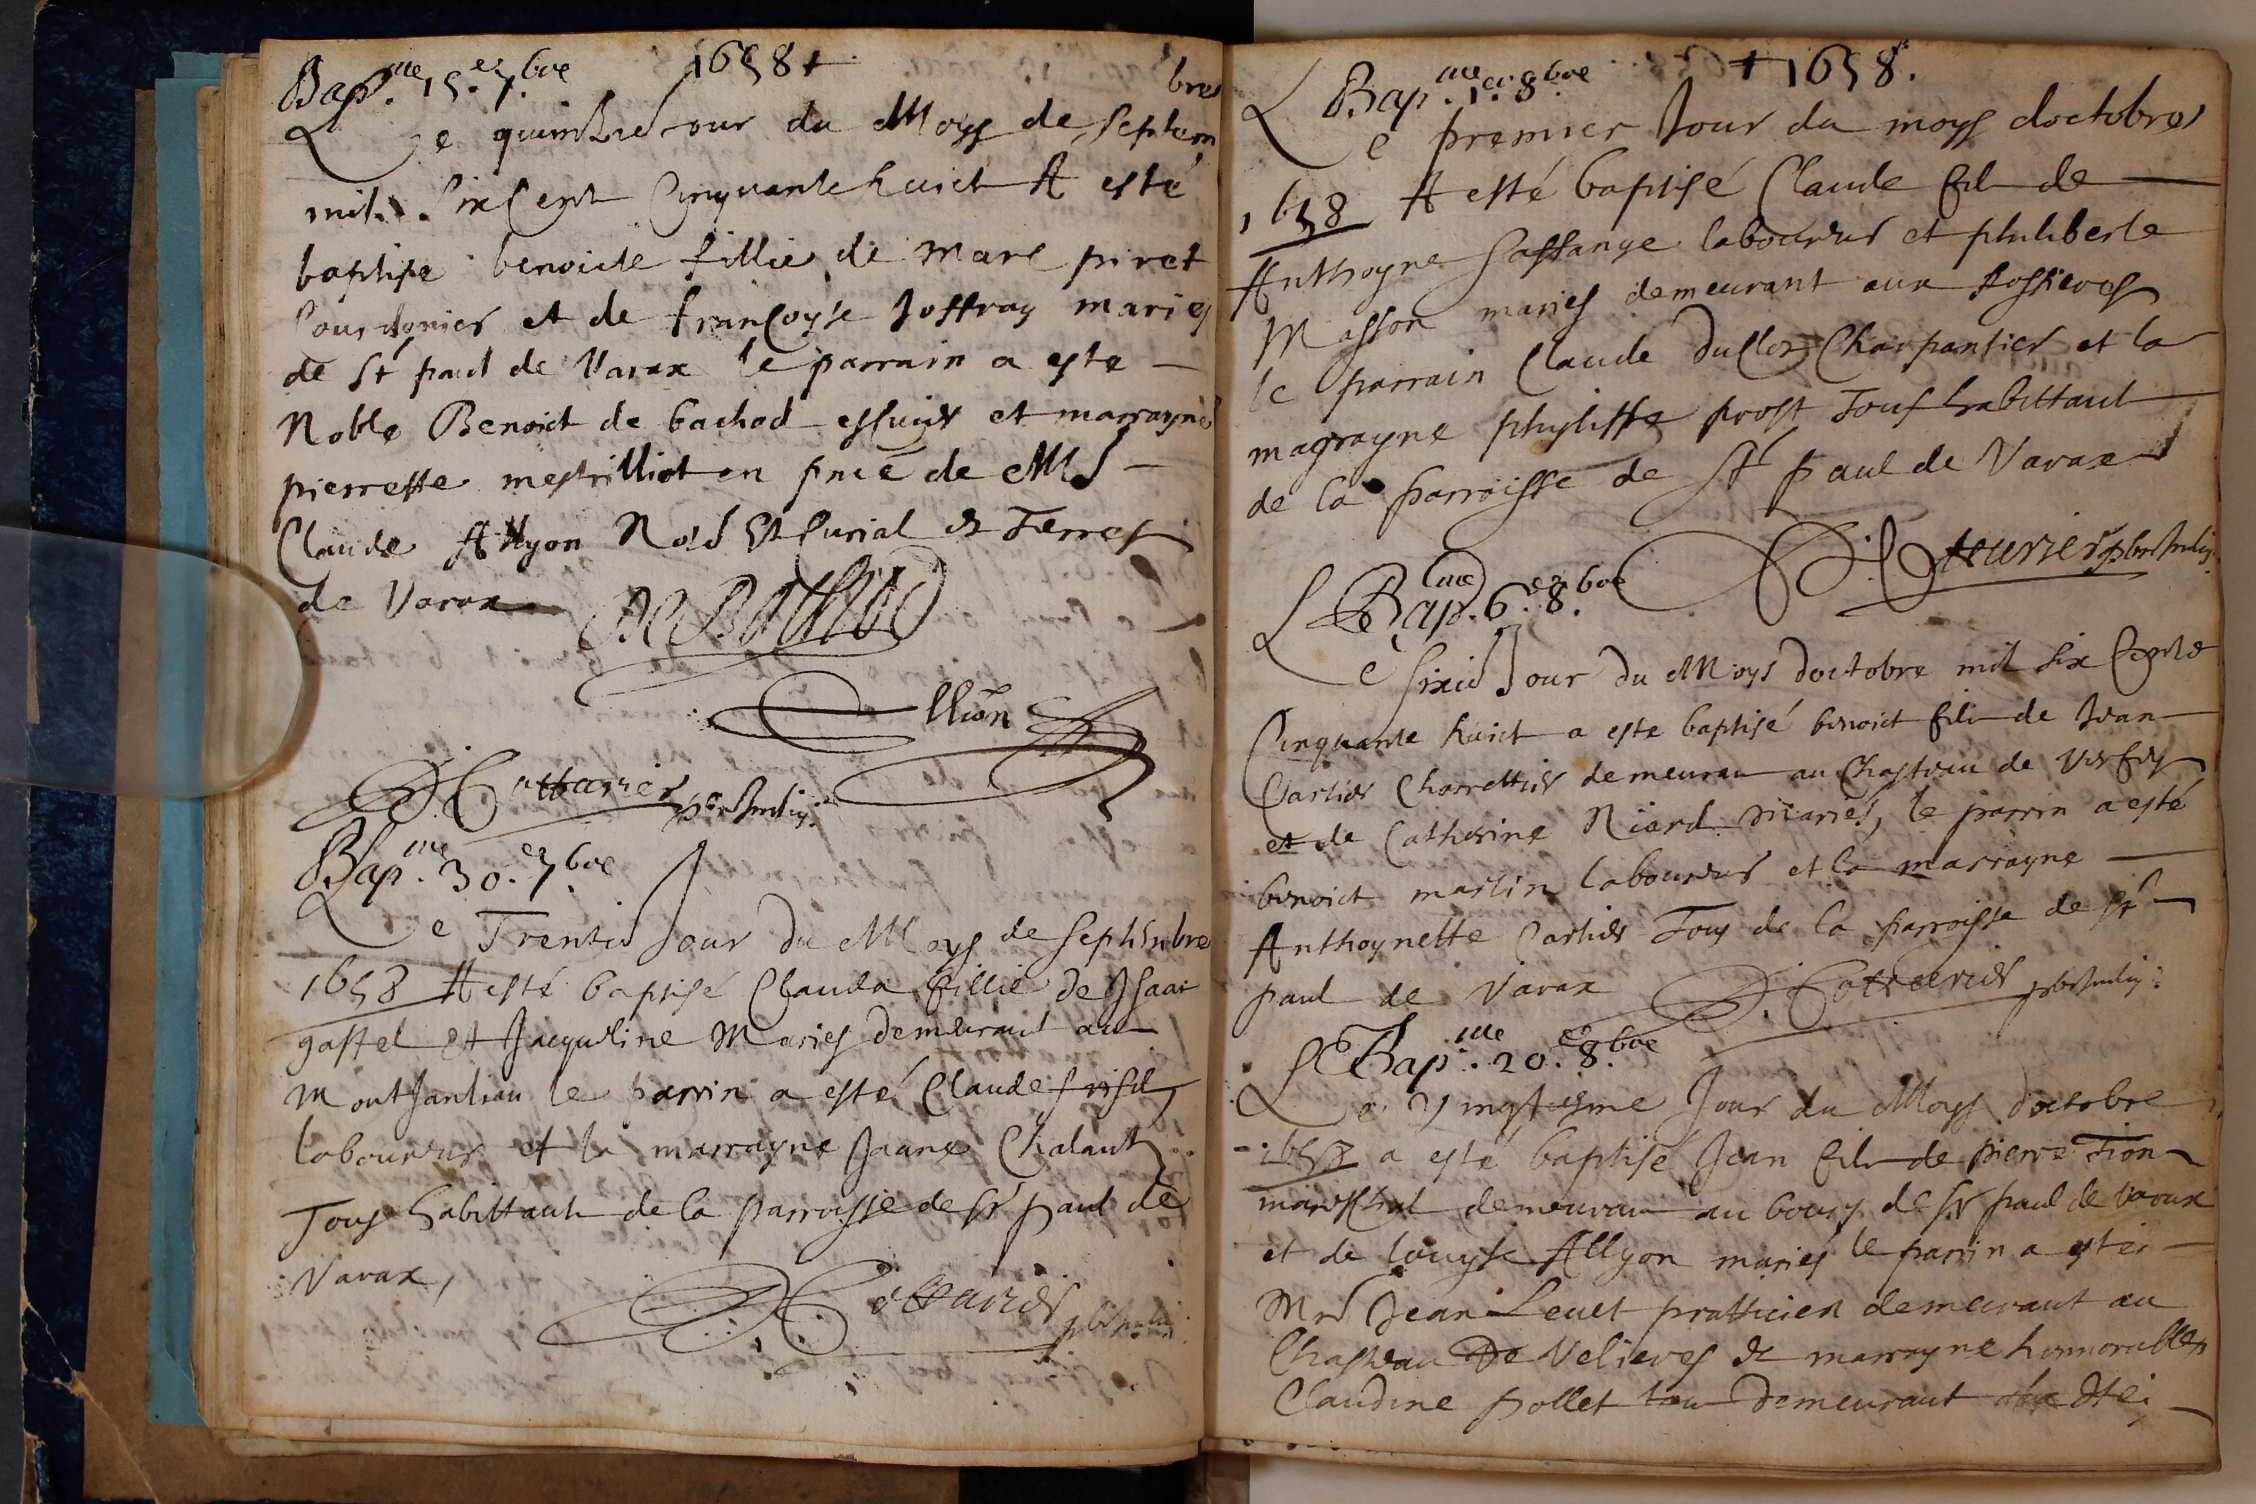 1658
Bap.me 15.e 7.bre
bres
Le quinzie Jour du Moys de Septem
mil Six Cent Cinquante huict A esté
baptise benoiste fillie de Marc piret
Courdonier et de francoyse Joffray maries
de St paul de Varax le parrain a este
Noble Benoict de bachod escuier et marrayne
pierrette mestrilliot en pnce de Me
Claude Allyon Not Et Curial de Terres
de Varax
De Bachod
Allion
Cottarier pbr
Bap.me 30.e 7.bre
Le Trentie Jour du Moys de Septembre
1658 A esté baptisé Clauda fillie de Jsaac
gastel Et Jacqueline Maries demeurant au
le parrin a esté Claude
laboureur et la marrayne Jaane Chalant
Tous habittant de la parroisse de St paul de
Varax,
Cottarier pbr
1658.
Bap.me 1.er 8.bre
Le premier Jour du moys doctobre
1658 A esté baptisé Claude fil de
Anthoyne Saffange laboureur et philiberte
Masson maries demeurant aux Rossieres
le parrain Claude Duclos Charpantier et la
marrayne philiffe prost Tous habittant
de la parroisse de St paul de Varax
Cottarier pbr
Bap.me 6.e 8.bre
Le Sixie Jour du Moys doctobre mil six Cents
Cinquante huict a este baptisé benoict fils de Jean
Cartier Charrettier demeuran au Chasteau de
et de Catherine Niard mariés, le parrin a esté
benoict martin laboureur et la marrayne
Anthoynette Cartier Tous de la parroisse de St
paul de Varax Cottarier pbr
Bap.me 20.e 8.bre
Le Vingtiesme Jour du Moys doctobre
1658 a esté baptisé Jean fils de pierre Tion
mareschal demeuran au bourg de St paul de varax
et de louyse Allyon mariés le parrin a esté
Mre Jean Leuet pratticien demeurant au
Chasteau De Velieres Et marrayne honnorable
Claudine pollet demeurant